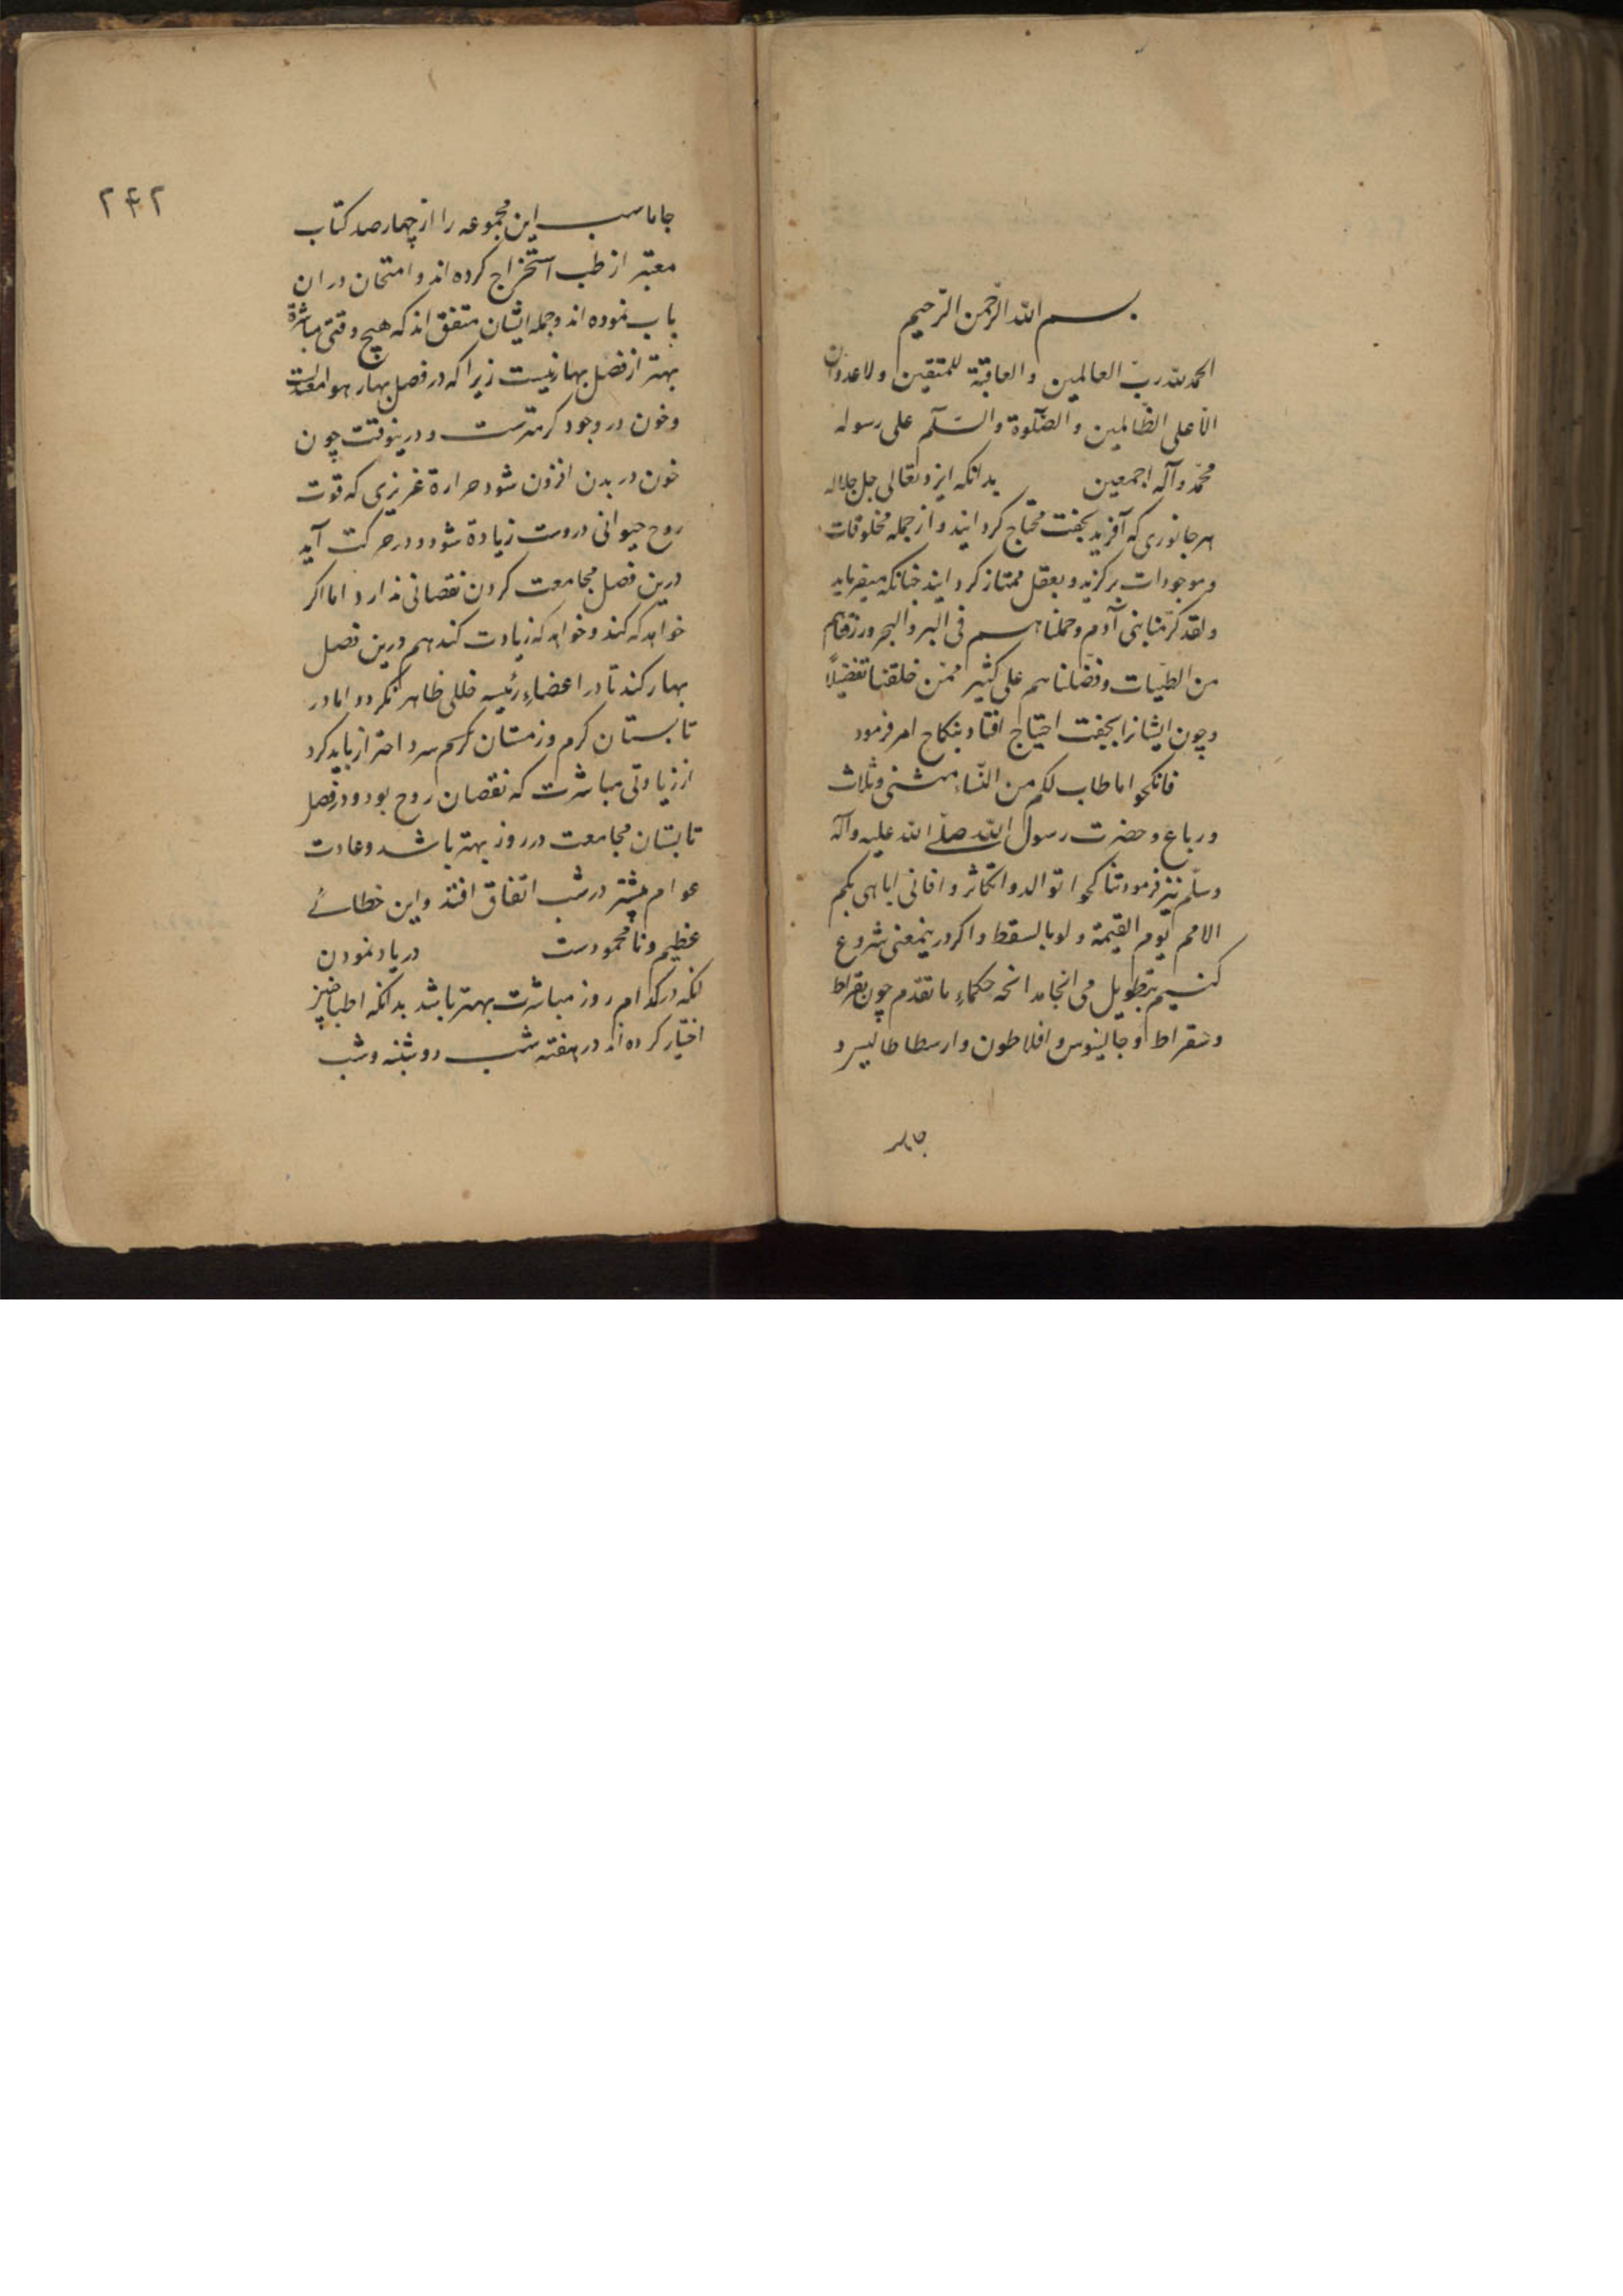 بسم الله الرحمن الرحیم
الحمدلله ربّ العالمین و العاقبة للمتقین ولا عدوان
الّا علی الظّالمین و الصّلوة والسّلم علی رسوله
محمّد وآله اجمعین بدانکه ایزد تعالی جل جلاله
هر جانوری که آفرید بجفت محتاج کردانید و از جمله مخلوقات
و موجودات برکزید و بعقل ممتاز کردانید چنانکه میفرماید
ولقد کرّمنا بنی آدم وحملناهم فی البر والبحر ورزقناهم
من الطیّبات وفضّلناهم علی کثیر ممّن خلقنا تفضیلًا
و چون ایشانرا بجفت احتیاج افتاد بنکاح امر فرمود
فانکحوا ما طاب لکم من النّساء مثنی وثلاث
ورباع وحضرت رسول الله صلّی الله علیه وآله
وسلّم نیز فرمود تناکحوا توالدوا تکاثروا فانی اباهی بکم
الامم یوم القیمة ولو بالسقط واکر درینمعنی شروع
کنیم بتطویل می انجامد انچه حکماءِ ما تقدّم چون بقراط
وسقراط و جالینوس و افلاطون و ارسطاطالیس و
جاماسب این مجموعه را از چهارصد کتاب
معتبر از طب استخراج کرده اند و امتحان در ان
باب نموده اند و جمله ایشان متفق اند که هیچ وقتی مباشرة
بهتر از فصل بهار نیست زیرا که در فصل بهار هوا معتدلست
وخون در وجود کرمترست و درینوقت چون
خون در بدن افزون شود حرارة غریزی که قوت
روح حیوانی دروست زیادة شود و در حرکت آید
درین فصل مجامعت کردن نقصانی ندارد اما اکر
خواهد که کند و خواهد که زیادت کند هم درین فصل
بهار کند تا در اعضاءِ رئیسه خللی ظاهر نکردد اما در
تابستان کرم و زمستان سرد احتراز باید کرد
از زیادتی مباشرت که نقصان روح بود و در فصل
تابستان مجامعت در روز بهتر باشد وعادت
عوام بیشتر در شب اتفاق افتد و این خطائے
عظیم و نامحمودست در یاد نمودن
انکه در کدام روز مباشرت بهتر باشد بدانکه اطبا چنیز
اختیار کرده اند در هفته شب دوشنبه وشب
۲۴۲